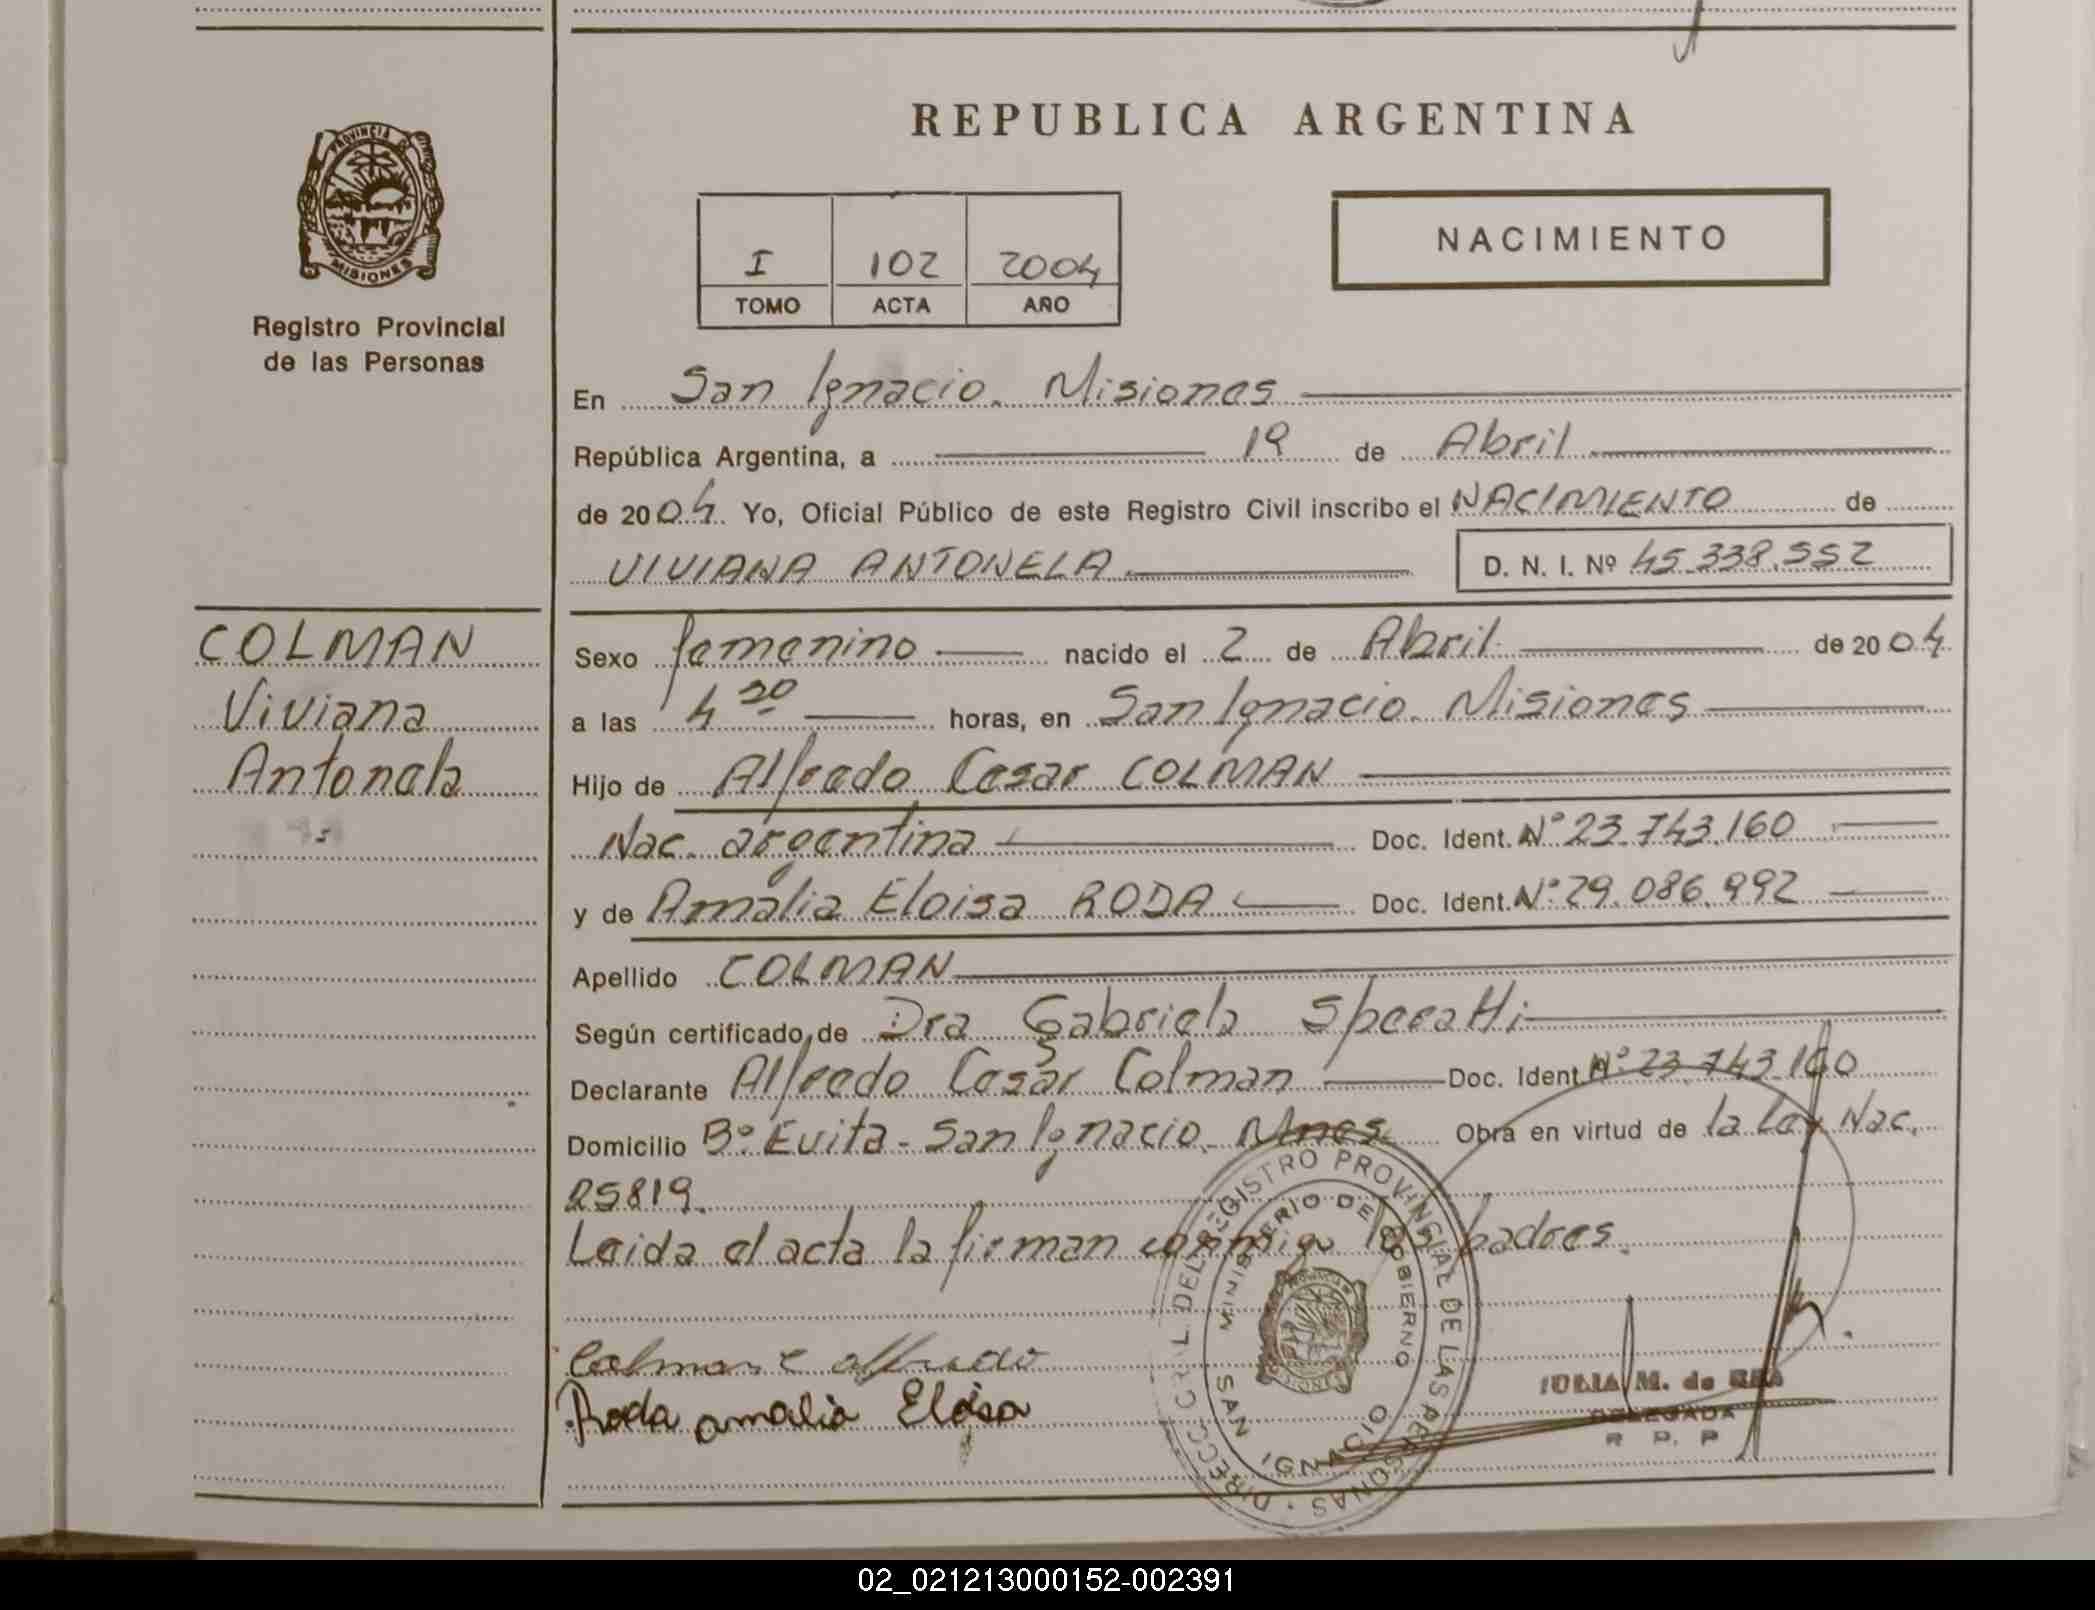 REPUBLICA ARGENTINA
PROVINCIA DE MISIONES
Registro Provincial
de las Personas
I 102 2004
TOMO ACTA AÑO
NACIMIENTO
En San Ignacio. Misiones
República Argentina, a 19 de Abril
de 2004. Yo, Oficial Público de este Registro Civil inscribo el NACIMIENTO de
VIVIANA ANTONELA D. N. I. Nº 45.338.552
COLMAN
Viviana
Antonela
Sexo femenino nacido el 2 de Abril de 2004
a las 4 30 horas, en San Ignacio. Misiones
Hijo de Alfredo Cesar COLMAN
Nac. argentina Doc. Ident. Nº 23.743.160
y de Amalia Eloisa RODA Doc. Ident. Nº 29.086.992
Apellido COLMAN
Según certificado de Dra Gabriela Speratti
Declarante Alfredo Cesar Colman Doc. Ident. Nº 23.743.160
Domicilio Bº Evita - San Ignacio. Mnes. Obra en virtud de la Ley Nac.
25819.
Leida el acta la firman conmigo los padres.
Colman C alfredo
Roda amalia Eloisa
DIRECC. GRAL. DEL REGISTRO PROVINCIAL DE LAS PERSONAS
MINISTERIO DE GOBIERNO
SAN IGNACIO
JULIA M. de REA
DELEGADA
R. P. P.
02_021213000152-002391